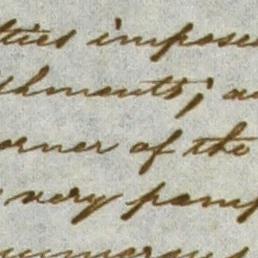 ties imposed
thments; a
orner of the
very pamp
numerous